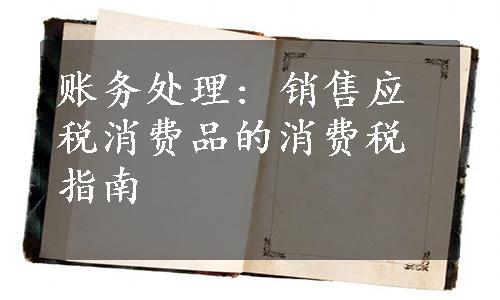 账务处理：销售应
税消费品的消费税
指南